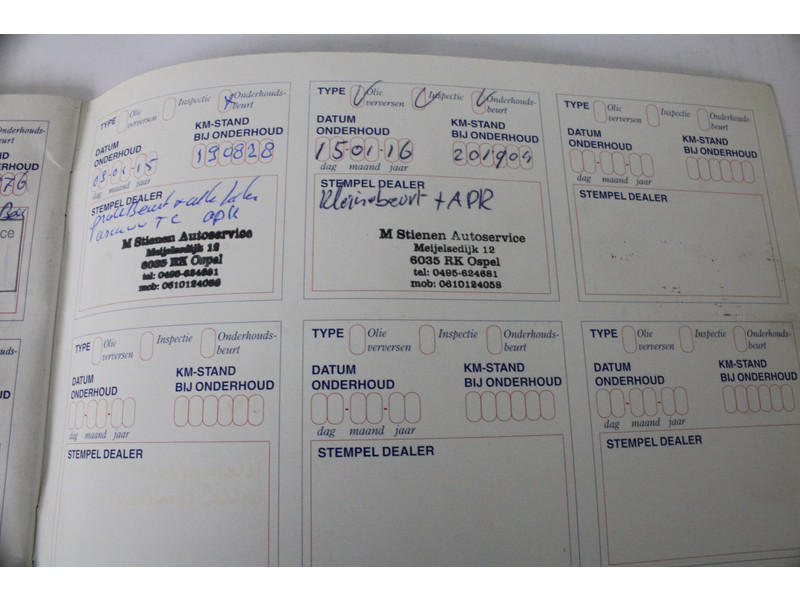 TYPE Olie verversen Inspectie Onderhoudsbeurt
DATUM ONDERHOUD
KM-STAND BIJ ONDERHOUD
08-01-15
190828
dag maand jaar
STEMPEL DEALER
apk
M Stienen Autoservice
Meijelsedijk 12
6035 RK Ospel
tel: 0495-624681
mob: 0610124058
TYPE Olie verversen Inspectie Onderhouds-beurt
DATUM ONDERHOUD
KM-STAND BIJ ONDERHOUD
15-01-16
201909
dag maand jaar
STEMPEL DEALER
Kleinebeurt + APK
M Stienen Autoservice
Meijelsedijk 12
6035 RK Ospel
tel: 0495-624681
mob: 0610124058
TYPE Olie verversen Inspectie Onderhouds-beurt
DATUM ONDERHOUD
KM-STAND BIJ ONDERHOUD
dag maand jaar
STEMPEL DEALER
TYPE Olie verversen Inspectie Onderhouds-beurt
DATUM ONDERHOUD
KM-STAND BIJ ONDERHOUD
dag maand jaar
STEMPEL DEALER
TYPE Olie verversen Inspectie Onderhouds-beurt
DATUM ONDERHOUD
KM-STAND BIJ ONDERHOUD
dag maand jaar
STEMPEL DEALER
TYPE Olie verversen Inspectie Onderhouds-beurt
DATUM ONDERHOUD
KM-STAND BIJ ONDERHOUD
dag maand jaar
STEMPEL DEALER